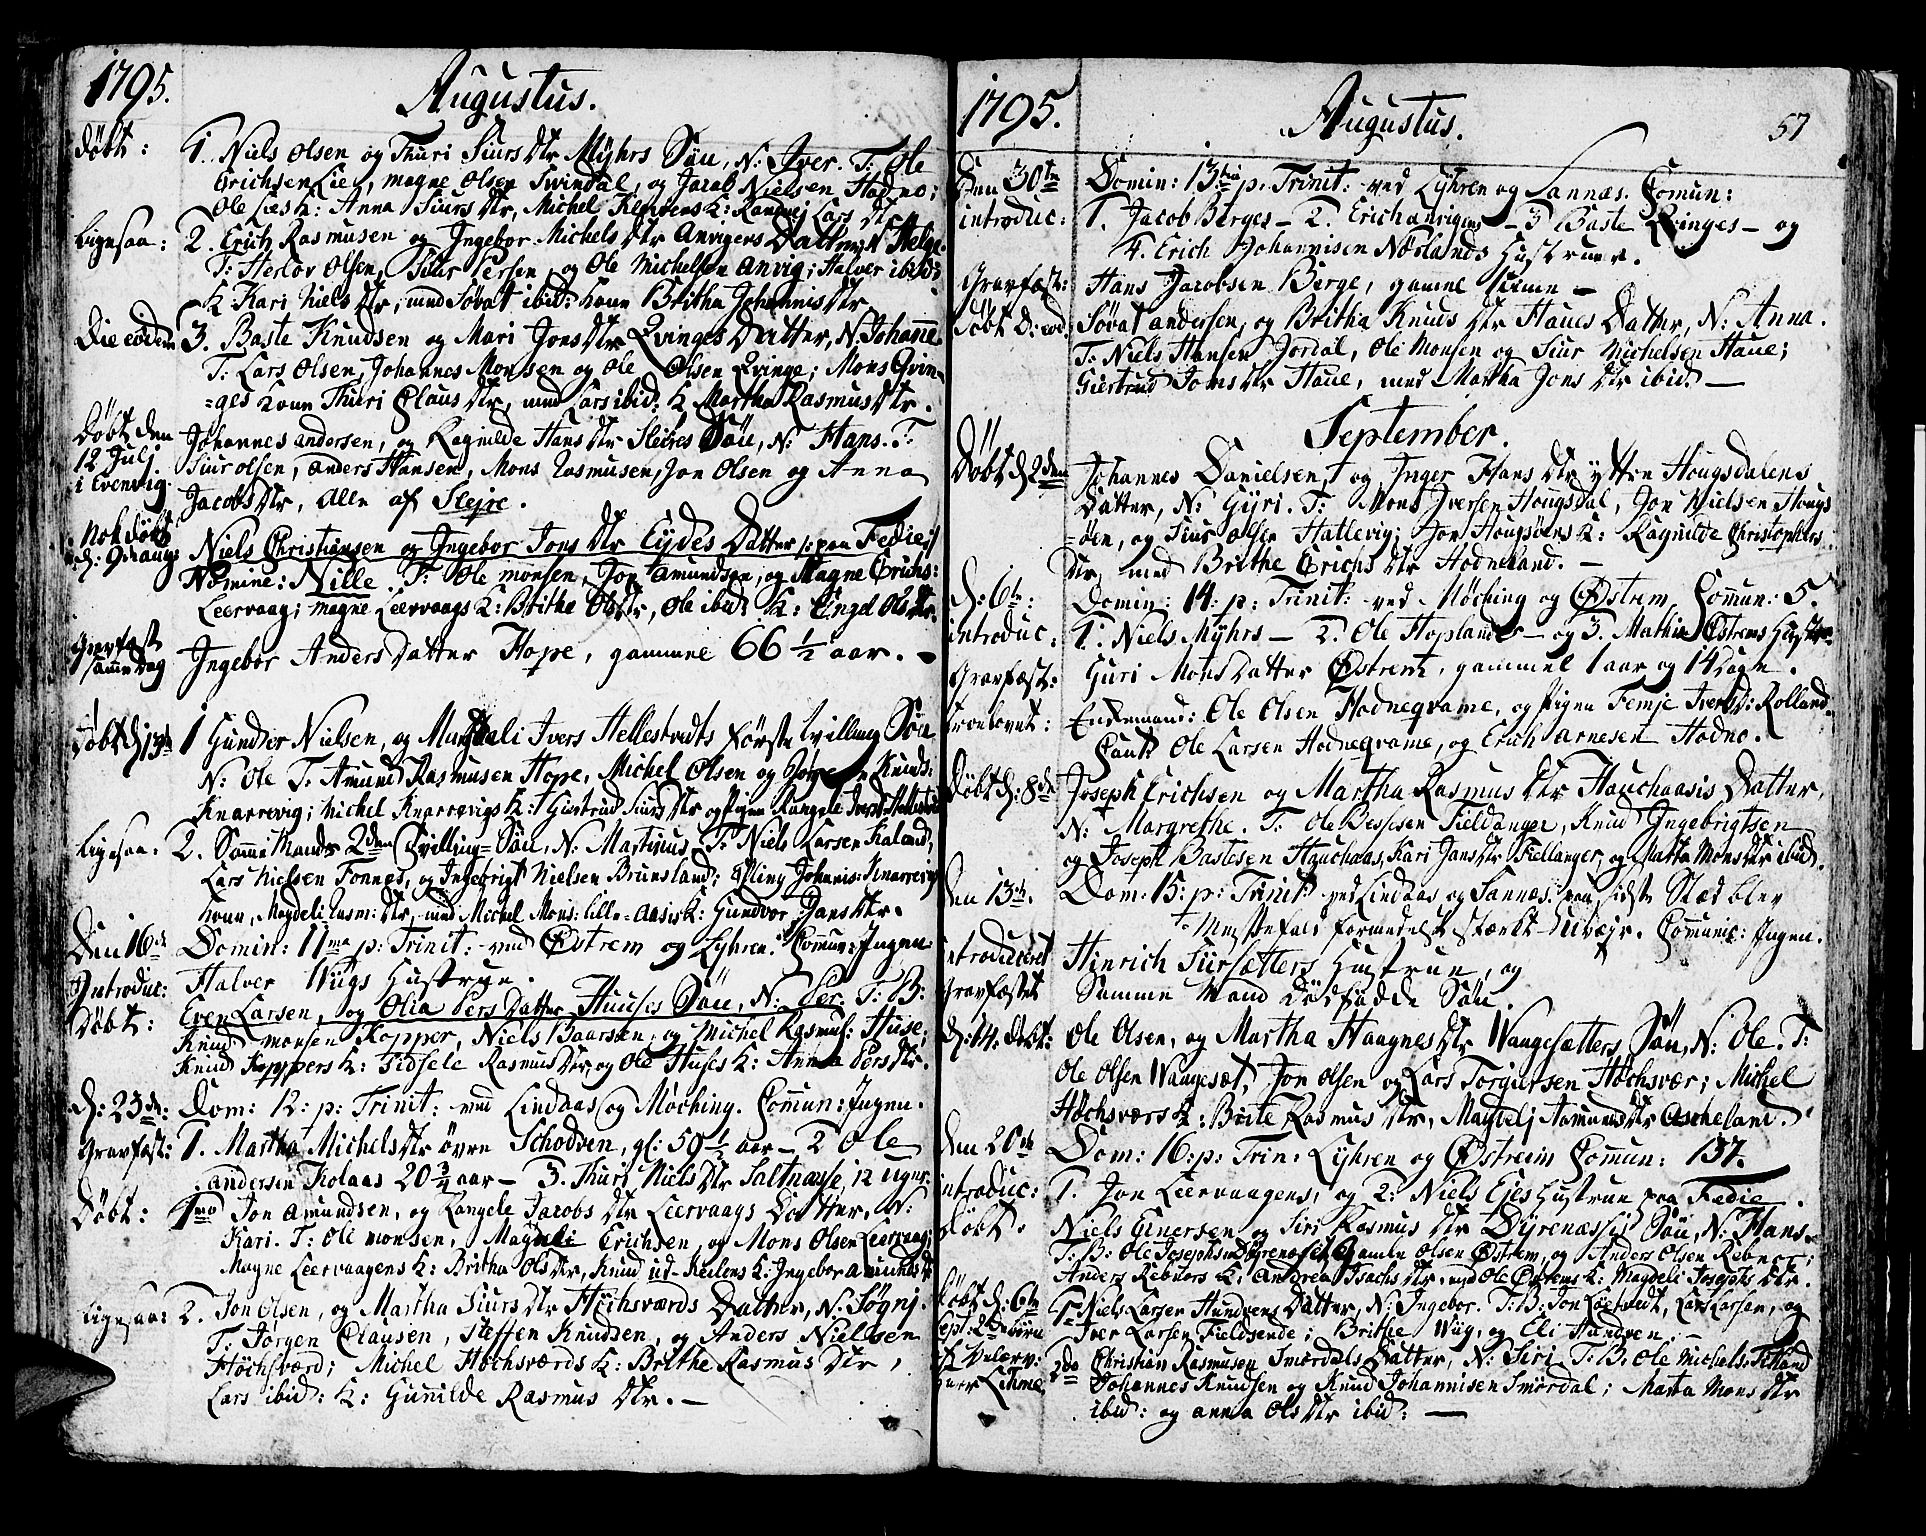 1795.
Augustus.
Døbt: 1. Niels Olsen og Thuri Siurs Dtr Myhrs Søn, N: Iver. T: Ole
Erichsen Lie, magne Olsen Swindal, og Jacob Nielsen Hodno;
Ole Lies K: Anna Siurs Dtr, Michel K: Lars Dtr
Ligesaa: 2. Erich Rasmusen og Ingebor Michels Dtr Anvigers Datter, N: Helge
T: Herlov Olsen, Siur Persen og Ole Michelsen Anvig; Halver ibid:
K Kari Niels Dtr, med Søvat ibid: kone Britha Johannis Dtr
Die eodem 3. Baste Knudsen og Mari Jons Dtr Qvinges Datter, N: Johanne
T: Lars Olsen, Johannes Monsen og Ole Olsen Qvinge; Mons Qvin-
=ges kone Thuri Claus Dtr, med Lars ibid: K Martha Rasmus Dtr.
Døbt den
12 Julj
i Evenvig.
Johannes Andersen, og Ragnilde Hans Dtr Sleires Søn, N: Hans. T:
Siur Olsen, Anders Hansen, Mons Rasmusen, Jon Olsen og Anna
Jacobs Dtr, alle af Sleire.
Nok døbt
d: 9 Aug:
Niels Christiansen og Ingebor Jons Dtr Eydes Datter /: paa Fedie :/
Nomine: Nille. T: Ole Monsen, Jon Amundsen, og Magne Erichs:
Leervaag; magne Leervaags K: Brithe Ols Dtr, Ole ibid: K: Engel Ols Dtr.
Gravfæst
samme Dag
Ingebor Anders Datter Hope, gammel 66 ½ aar. -
Døbt d: 13de 1 Gunder Nielsen, og Magdeli Ivers Hellestvedts første tvilling Søn
N: Ole T: Amund Rasmusen Hope, Michel Olsen og Knuds:
Knarrevig; Michel Knarrevigs K: Giertrud Siurs Dtr og Pigen Rangele Ivers Hellestvedt
Ligesaa: 2. Samme Mands 2den Tvilling-Søn, N: Martinus T: Niels Larsen Kaland,
Lars Nielsen Fonnes, og Ingebrigt Nielsen Brunsland; Elling Johannis: Knarrevig
kone, Magdeli Rasm: Dtr, med Michel Mons: lille-Aases K: Gundvor Jans Dtr.
Den 16de Domin: 11ma p: Trinit: med Østrem og Lyhren. Comun: Ingen
Introduc: Halver Wiigs Hustrue.
Døbt: Even Larsen, og Olia Pers Datter Huuses Søn, N: Per: T: B:
Knud Monsen Kopper, Niels Baarsen, og Michel Rasmus: Huse;
Knud Koppers K: Sidsele Rasmus Dtr og Ole Huses K: Anna Pers Dtr.
d: 23de: Dom: 12: p: Trinit: med Lindaas og Møching. Comun: Ingen.
Gravfæst: 1. Martha Michels Dtr øvre Schodven, gl: 59 ½ aar - 2 Ole
Andersen Kolaas 20 ¾ aar - 3. Thuri Niels Dtr Saltnasse, 12 uger.
Døbt: 1mo Jon Amundsen, og Rangele Jacobs Dtr Leervaags Datter, N:
Kari. T: Ole Monsen, Magdeli Erichsen, og Mons Olsen Leervaag;
Magne Leervaagens K: Britha Ols Dtr, Knud ud-Keilens K: Ingebor Amunds Dtr
Ligesaa: 2. Jon Olsen, og Martha Siurs Dtr Høchsværds Datter, N: Søgnj.
T: Jørgen Clausen, Steffen Knudsen, og Anders Nielsen
Høchsværd; Michel Høchsværds K: Brithe Rasmus Dtr,
Lars ibid: K: Gunilde Rasmus Dtr. -
1795.
Augustus.
57
Den 30te Domin: 13tia p: Trinit: ved Lyhren og Sannæs. Comun:
introduc: 1. Jacob Berges - 2. Erich Anvigens - 3 Baste Qvinges - og
4. Erich Johannisen Næslands Hustruer.
Gravfæst: Hans Jacobsen Berge, gamel -
Døbt D: eod. Søvat Andersen, og Britha Knuds Dtr Haues Datter, N: Anna.
T: Niels Hansen Jordal, Ole Monsen og Siur Michelsen Haue;
Giertrud Jons Dtr Haue, med Martha Jons Dtr ibid. -
September.
Døbt d: 2den Johannes Danielsen, og Inger Hans Dtr ytre Hougsdalens
Datter, N: Gyri. T: Mons Iversen Hougsdal, Jon Nielsen Hougs
=døen, og Siur Olsen Hallevig; Jon Hougsdøens K: Ragnilde Christophers
Dtr, med Brithe Erichs Dtr Hodneland. -
d: 6te: Domin: 14: p: Trinit: ved Møching og Østrem Comun: 5.
introduc: 1. Niels Myhrs - 2. Ole Hoplands - og 3. Mathis Østrems Hustruer.
Gravfæst: Guri Mons Datter Østrem, gammel 1 aar og 14 Dage.
Trolovet: Enkemand: Ole Olsen Hodneqvame, og Pigen Femje Ivers D: Rolland.
Caut: Ole Larsen Hodneqvame, og Erich Arnesen Hodno.
Døbt d: 8de Joseph Erichsen og Martha Rasmus Dtr Hauchaasis Datter,
N: Margrethe. T: Ole Bessesen Fieldanger, Knud Ingebrigtsen
og Joseph Bastesen Hauchaas, Kari Jans Dtr Fiellanger, og Marta Mons Dtr ibid.
Den 13de. Dom: 15: p: Trinit: ved Lindaas og Sannæs: paa sidste Stæd blev
Messefald formedelst stærkt uveir. Comunic: Ingen.
introduceret Hinrich Siursætters Hustrue, og
Gravfæstet Samme Mand Dødfødde Søn.
d: 14. døbt: Ole Olsen, og Martha Haagnes Dtr Wangesætters Søn, N: Ole. T:
Ole Olsen Wangesæt, Jon Olsen og Lars Torgiersen Høchsvær; Michel
Høchsværs K: Brite Rasmus Dtr, Magdelj Aamunds Dtr Ascheland.
Den 20de Dom: 16: p: Trin: Lyhren og Østrem Comun: 137.
introduc: 1. Jon Leervaagens, og 2: Niels Ejes Hustrue paa Fedie.
Døbt. Niels Einersen og Siri Rasmus Dtr Dyrenæssis Søn, N: Hans.
T: B: Ole Josephs: Dyrenæs, Gamle Olsen Østrem, og Anders Olsen Rebnor;
Anders Rebnors K: Andrea Isachs Dtr, med Ole Østrems K: Magdeli Josephs Dtr.
Døbt d: 6te
Sept: 2de børn
1 Niels Larsen Hundvens Datter, N: Ingebor. T: B: Jon Løetvedt, Lars Larsen, og
Iver Larsen Fieldsende; Brithe Wiig, og Eli Hundven. -
2do Christian Rasmusen Smørdals Datter, N: Siri T: B: Ole Michels:
Johannes Knudsen og Knud Johannisen Smørdal; Marta Mons Dtr
ibid: og Anna Ols Dtr ibid: -